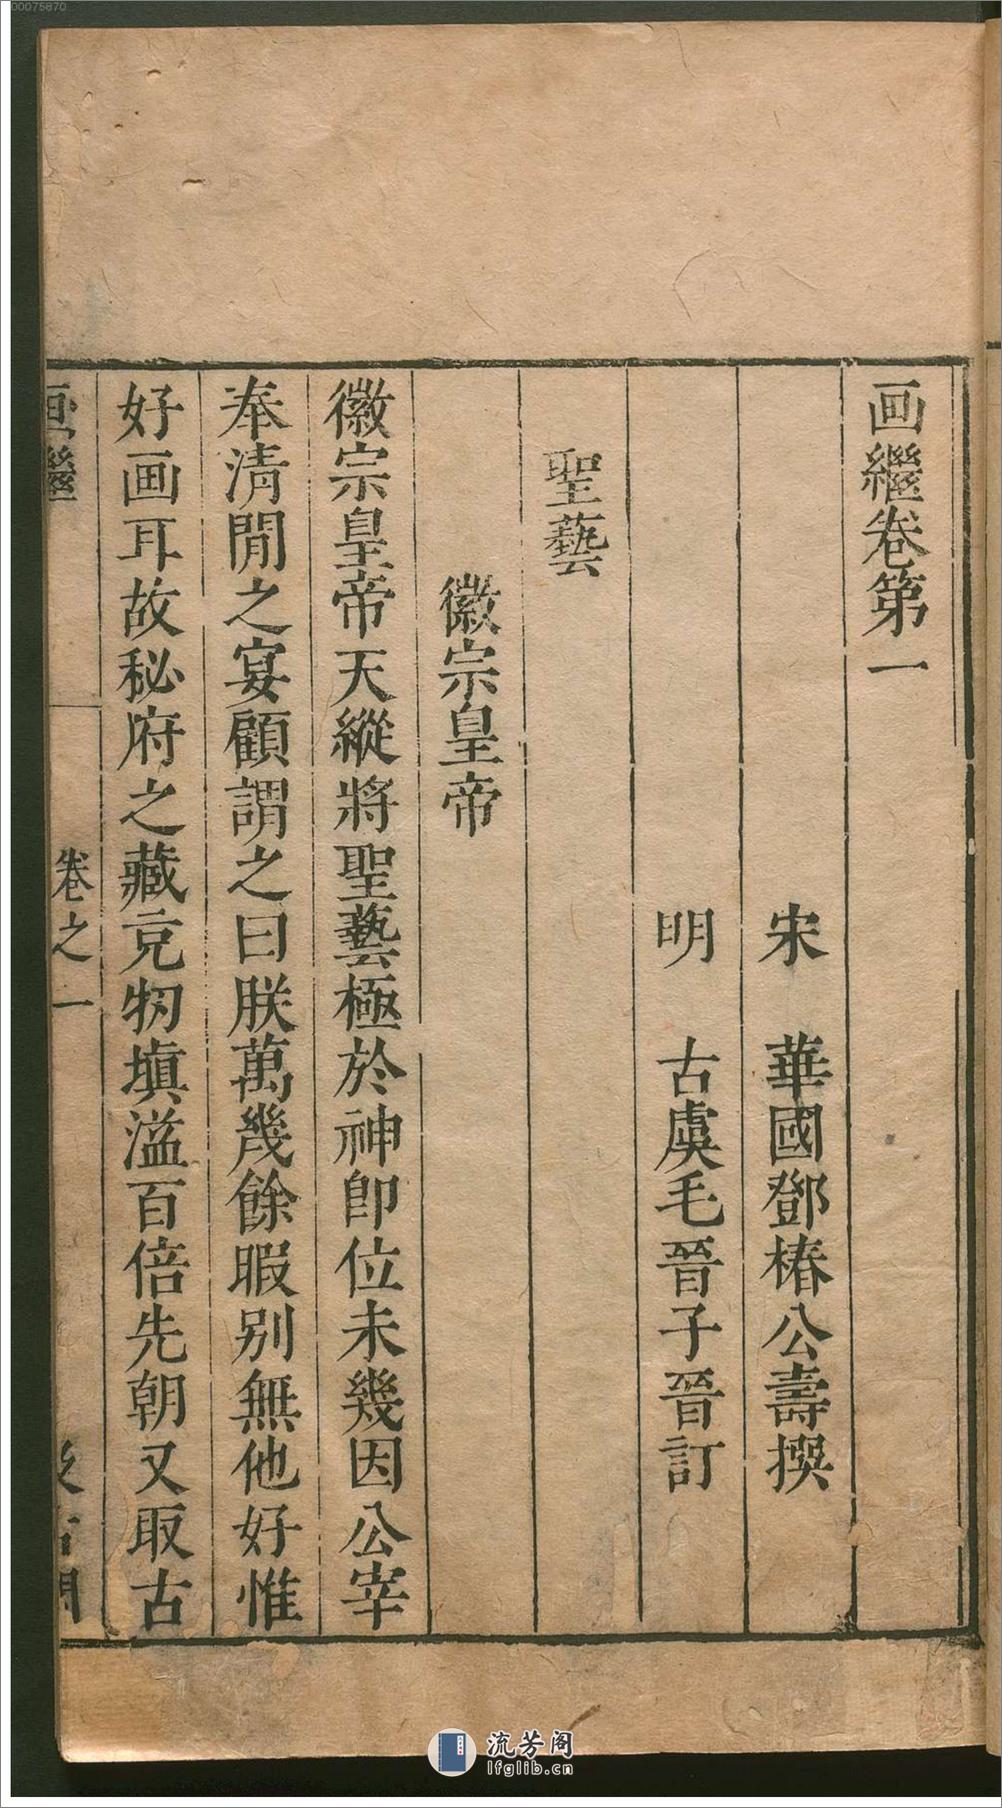 画繼卷第一
宋　華國鄧椿公壽撰
明　古虞毛晉子晉訂
聖藝
徽宗皇帝
徽宗皇帝天縱將聖藝極於神卽位未幾因公宰
奉清閒之宴顧謂之曰朕萬幾餘暇别無他好惟
好画耳故秘府之藏充牣塡溢百倍先朝又取古
画繼
卷之一
汲古閣
00075870
流芳阁
lfglib.cn